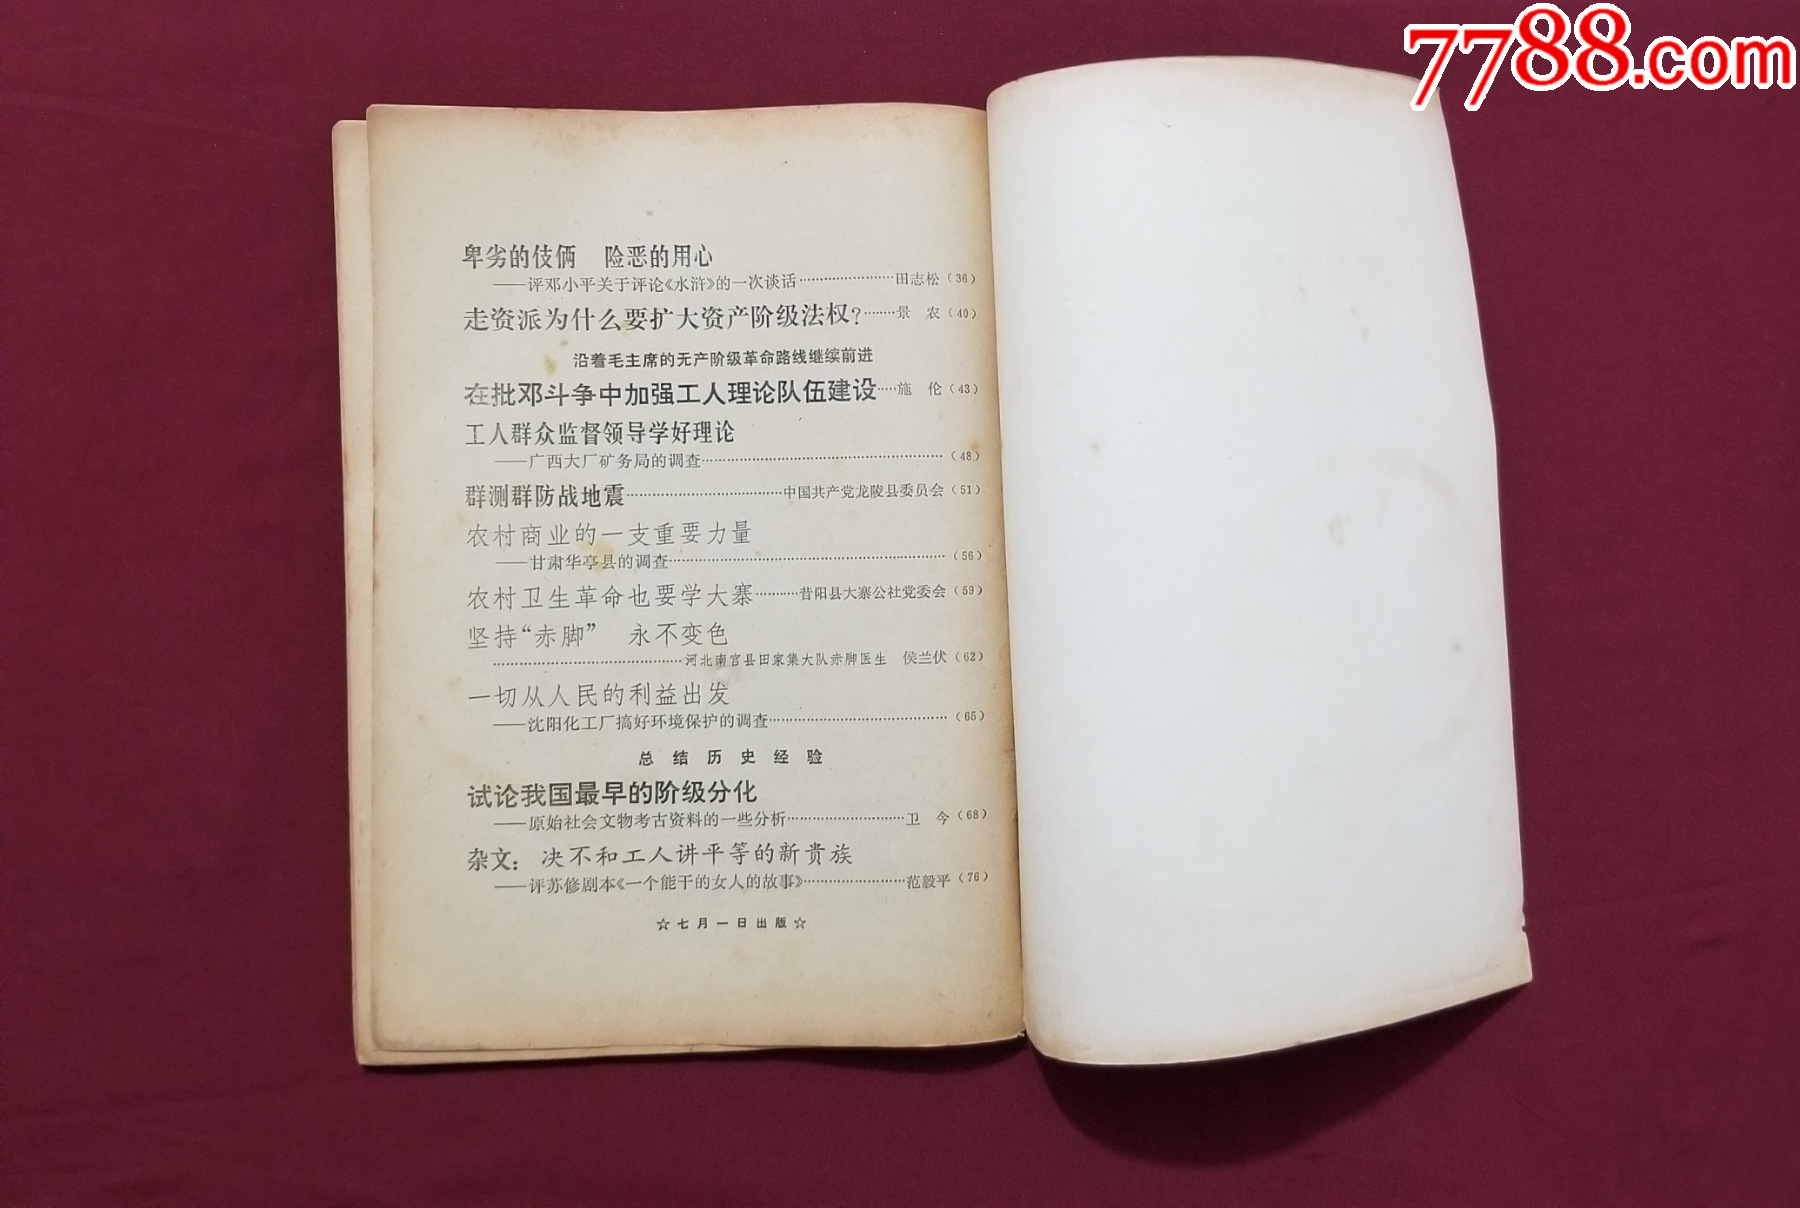 7788.com
卑劣的伎俩 险恶的用心
——评邓小平关于评论《水浒》的一次谈话……………………田志松（36）
走资派为什么要扩大资产阶级法权？……景 农（40）
沿着毛主席的无产阶级革命路线继续前进
在批邓斗争中加强工人理论队伍建设……施 伦（43）
工人群众监督领导学好理论
——广西大厂矿务局的调查……………………（48）
群测群防战地震……………………中国共产党龙陵县委员会（51）
农村商业的一支重要力量
——甘肃华亭县的调查……………………（56）
农村卫生革命也要学大寨…………昔阳县大寨公社党委会（59）
坚持“赤脚” 永不变色
……………………河北南宫县田家集大队赤脚医生 侯兰伏（62）
一切从人民的利益出发
——沈阳化工厂搞好环境保护的调查……………………（65）
总结历史经验
试论我国最早的阶级分化
——原始社会文物考古资料的一些分析……………………卫 今（68）
杂文：决不和工人讲平等的新贵族
——评苏修剧本《一个能干的女人的故事》……………………范毅平（76）
☆七月一日出版☆